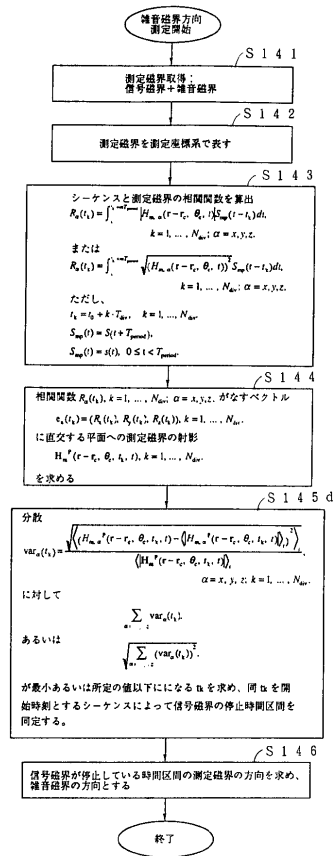 雑音磁界方向
測定開始
S141
測定磁界取得：
信号磁界＋雑音磁界
S142
測定磁界を測定座標系で表す
S143
シーケンスと測定磁界の相関関数を算出
R_α(t_k)=∫_{t_k}^{t_k+mT_period}|H_{m,α}(r-r_c, θ_c, t)|S_mp(t-t_k)dt,
k=1, ..., N_div; α=x, y, z.
または
R_α(t_k)=∫_{t_k}^{t_k+mT_period}√(H_{m,α}(r-r_c, θ_c, t))² S_mp(t-t_k)dt,
k=1, ..., N_div; α=x, y, z.
ただし、
t_k=t_0+k·T_div, k=1, ..., N_div.
S_mp(t)=S(t+T_period),
S_mp(t)=s(t), 0≤t<T_period.
S144
相関関数 R_α(t_k), k=1, ..., N_div; α=x,y,z, がなすベクトル
e_s(t_k)=(R_x(t_k), R_y(t_k), R_z(t_k)), k=1, ..., N_div.
に直交する平面への測定磁界の射影
H_m^P(r-r_c, θ_c, t_k, t), k=1, ..., N_div.
を求める
S145d
分散
var_α(t_k)=√⟨(H_{m,α}^P(r-r_c, θ_c, t_k, t)-⟨|H_{m,α}^P(r-r_c, θ_c, t_k, t)|⟩_t)²⟩_t/⟨|H_m^P(r-r_c, θ_c, t_k, t)|⟩_t,
α=x, y, z; k=1, ..., N_div.
に対して
Σ var_α(t_k).
あるいは
√Σ(var_α(t_k))².
が最小あるいは所定の値以下にになる tk を求め、同 tk を開
始時刻とするシーケンスによって信号磁界の停止時間区間を
同定する。
S146
信号磁界が停止している時間区間の測定磁界の方向を求め、
雑音磁界の方向とする
終了